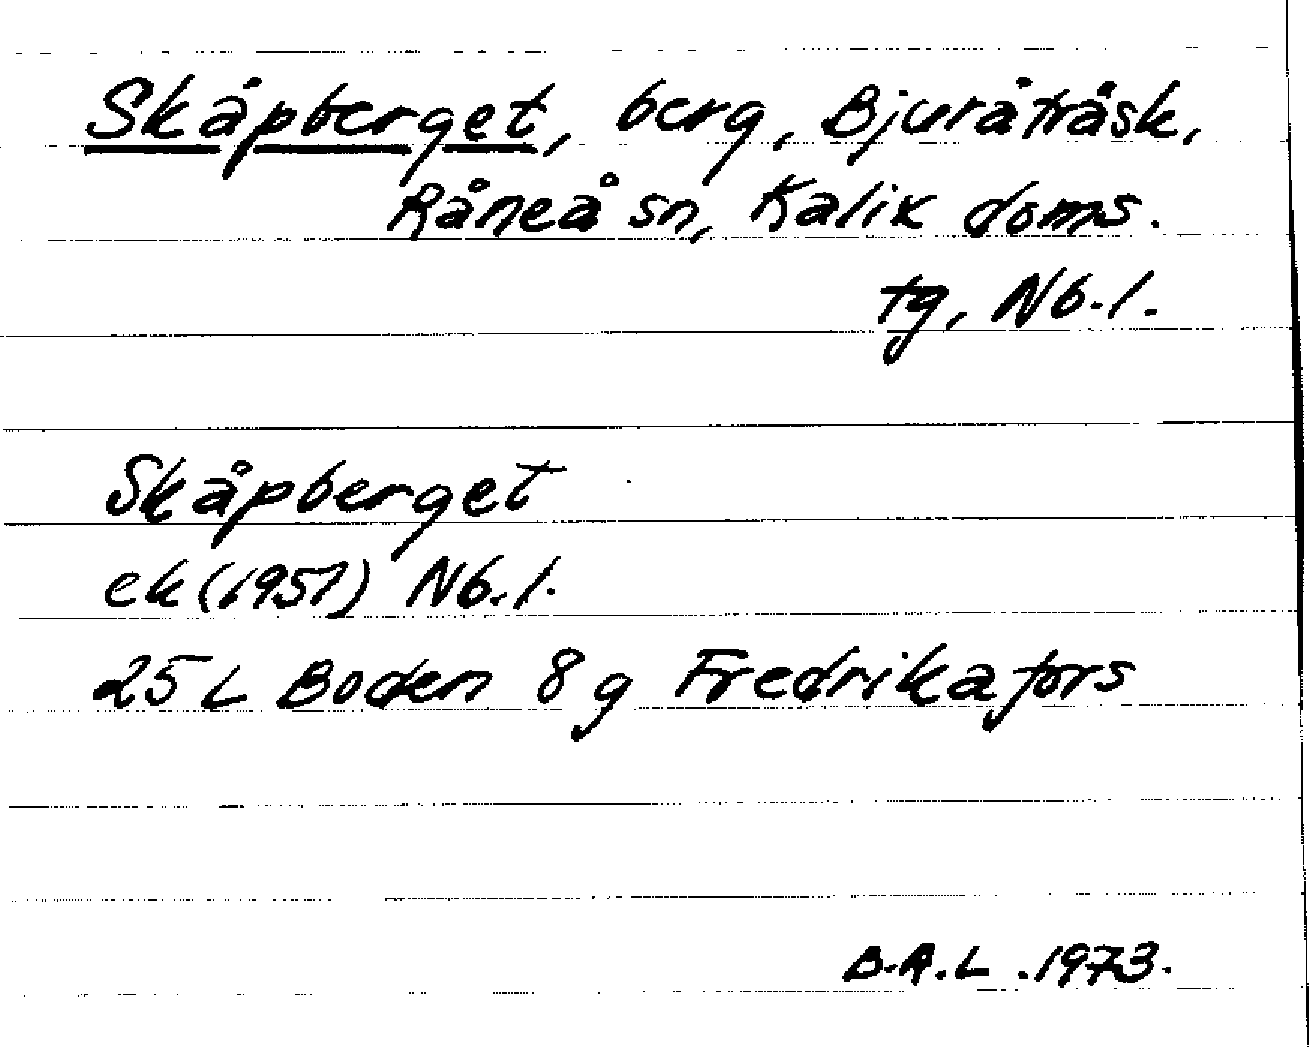 Skåpberget, berg, Bjuråträsk,
Råneå sn, Kalix doms.
tg, Nb. l.
Skåpberget
ek (1951) Nb. l.
25 L Boden 8 g Fredrikafors
B.R.L. 1973.